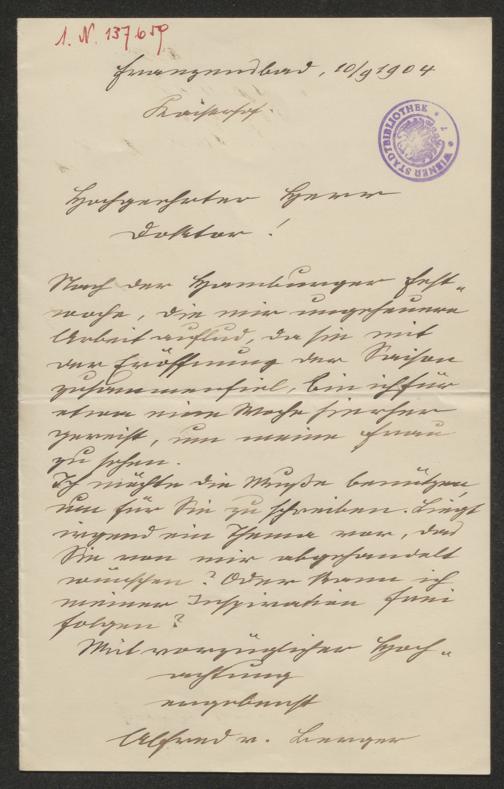 I. N. 137659
Franzensbad, 10/9 1904
Kaiserhof.
WIENER STADTBIBLIOTHEK
Hochgeehrter Herr
Doktor!
Nach der Hamburger Fest-
woche, die mir ungeheuere
Arbeit auflud, da sie mit
der Eröffnung der Saison
zusammenfiel, bin ich für
etwa eine Woche hierher
gereist, um meine Frau
zu sehen.
Ich möchte die Muße benützen,
um für Sie zu schreiben. Liegt
irgend ein Thema vor, das
Sie von mir abgehandelt
wünschen? Oder kann ich
meiner Inspiration frei
folgen?
Mit vorzüglicher Hoch-
achtung
ergebenst
Alfred v. Berger